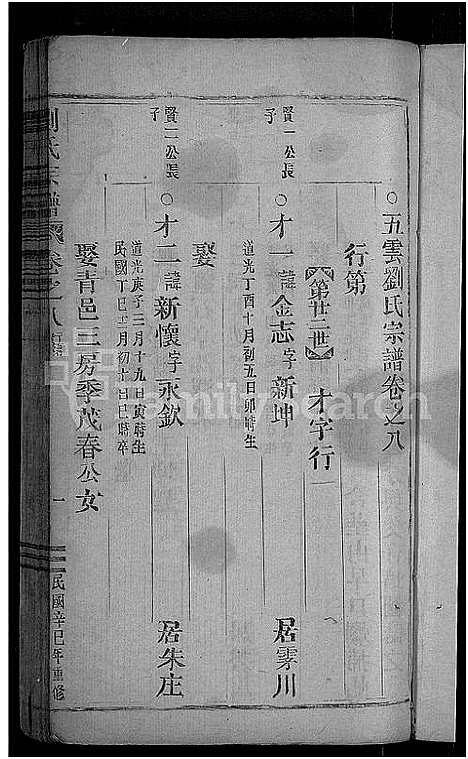 五雲劉氏宗譜卷之八
行第
【第廿二世】 才字行
賢一公長子
才一諱金志字新坤 居雺川
道光丁酉十月初五日卯時生
娶
賢二公長子
才二諱新懷字永欽 居朱庄
道光庚子二月十九日寅時生
民國丁巳十一月初十日巳時卒
娶青邑三房季茂春公女
劉氏宗譜 卷之八 行第 一 民國辛巳年重修
FamilySearch